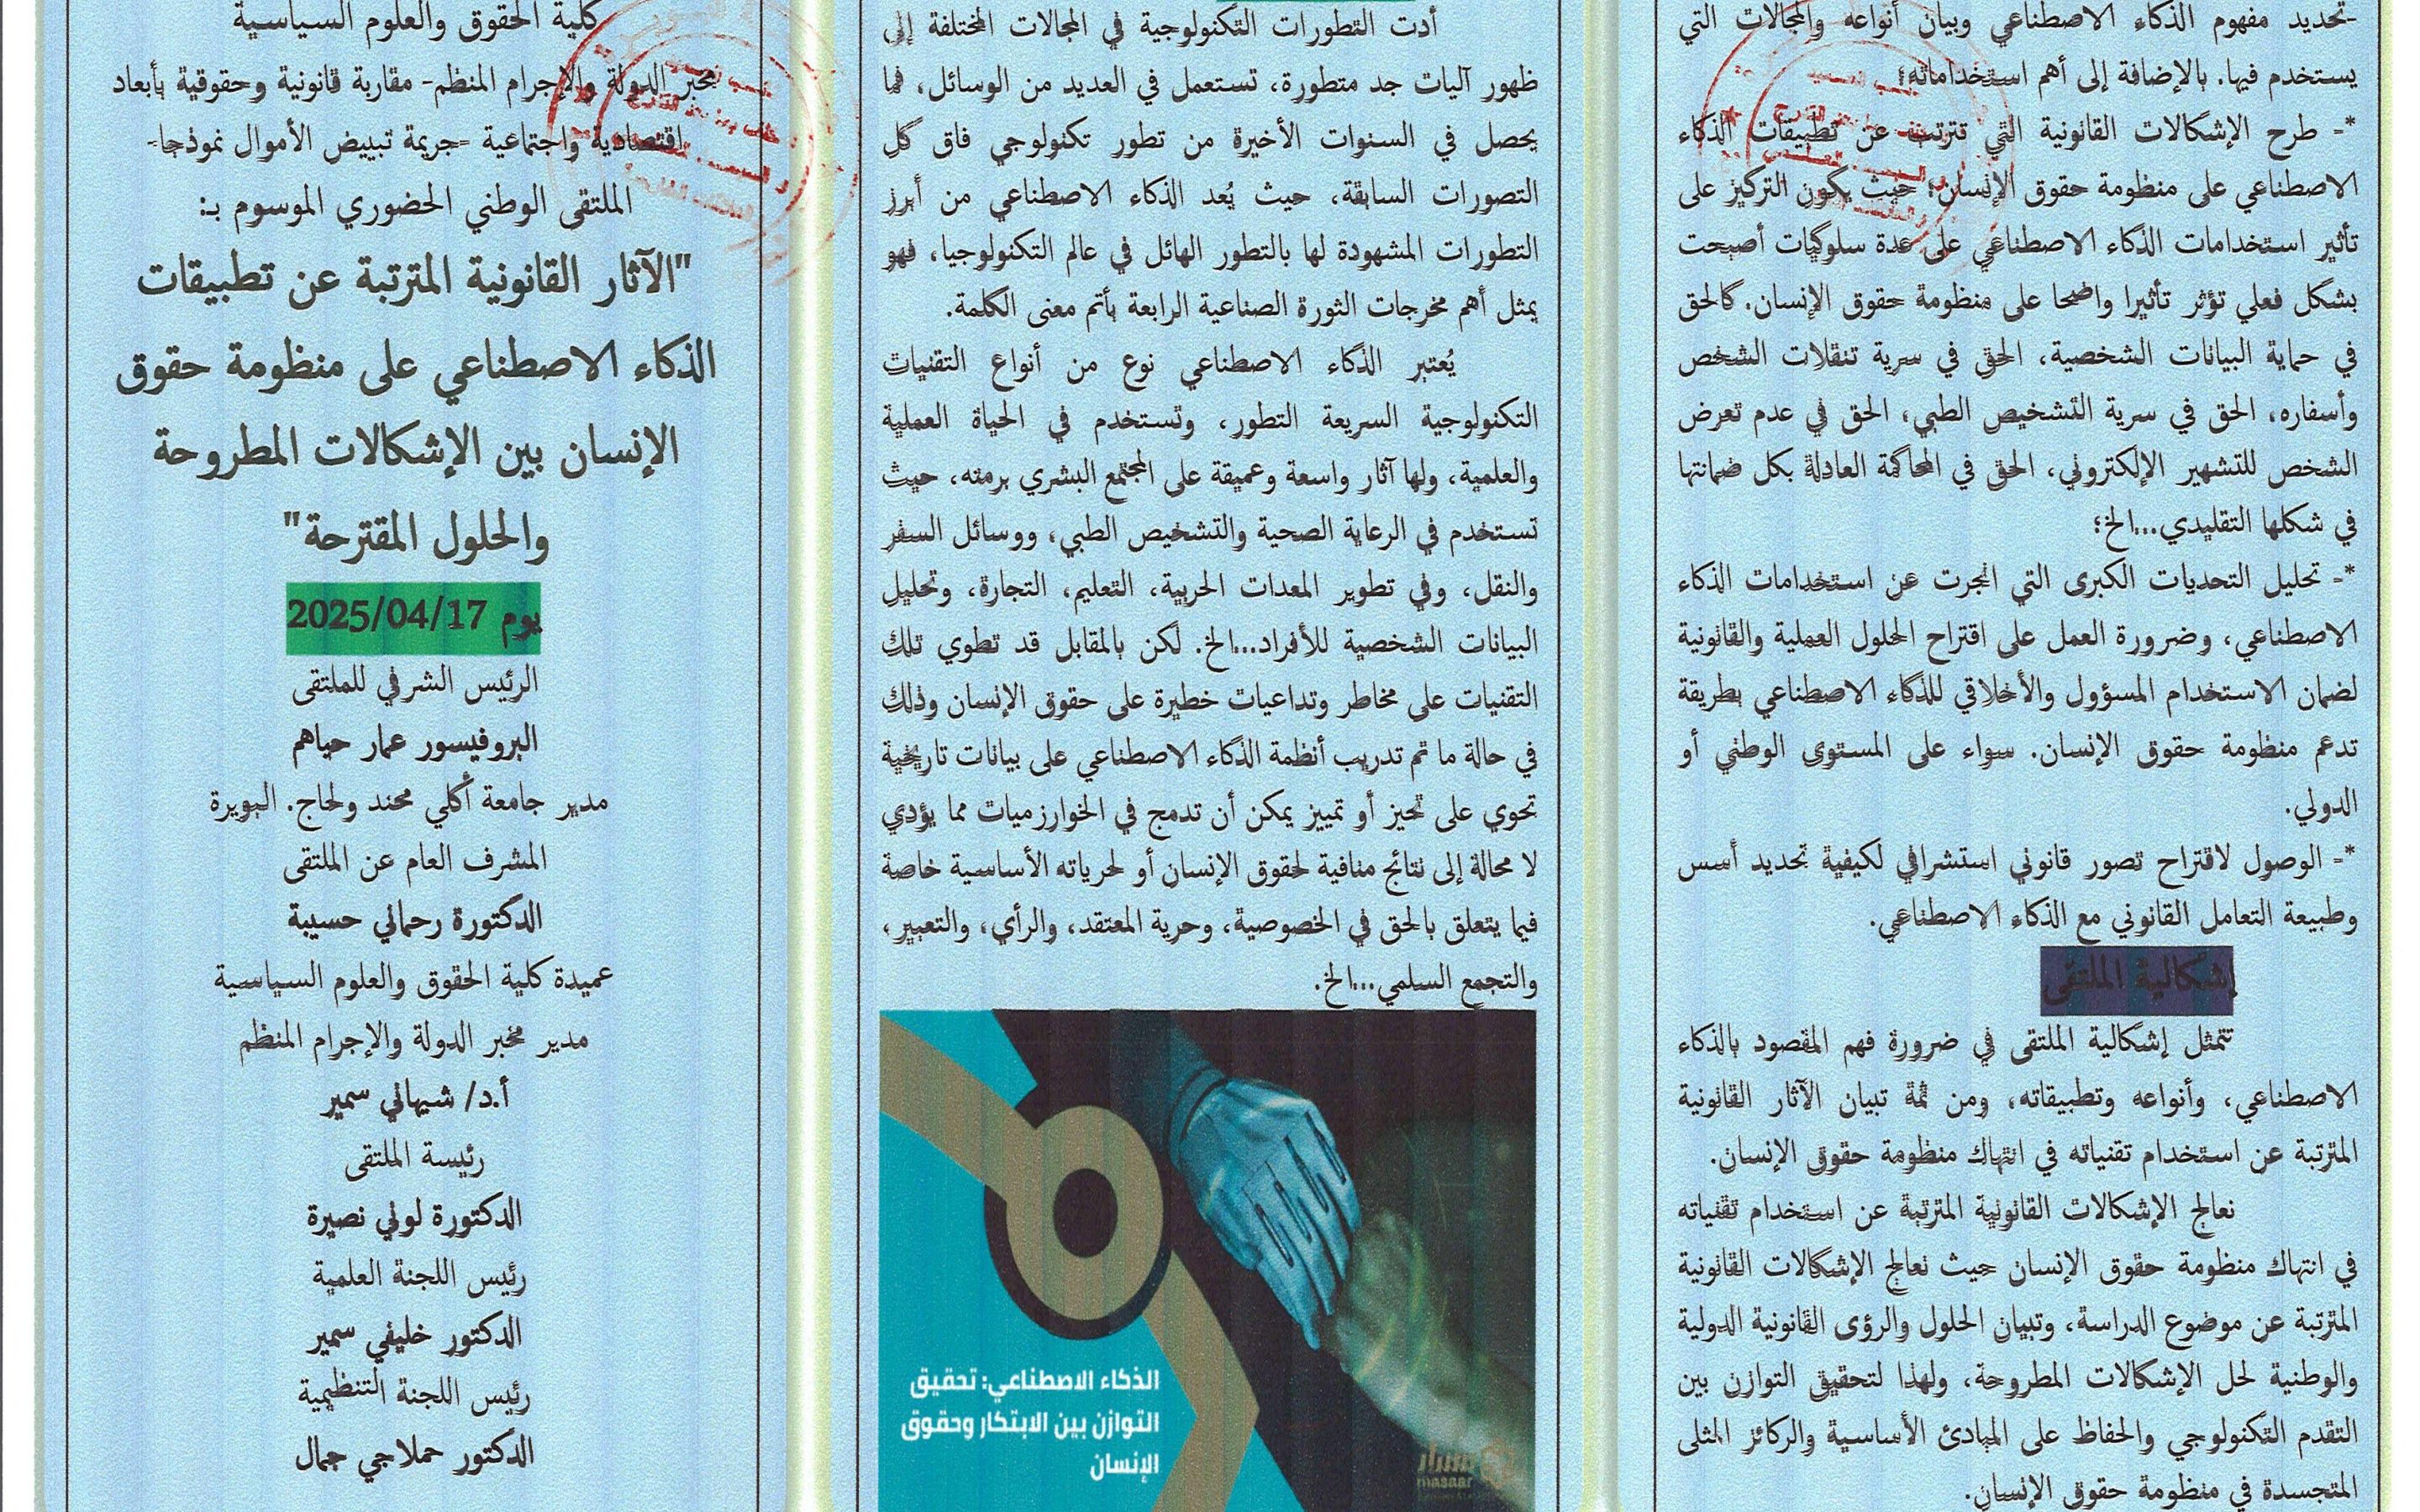 كلية الحقوق والعلوم السياسية
مخبر الدولة والإجرام المنظم- مقاربة قانونية وحقوقية بأبعاد
اقتصادية واجتماعية -جريمة تبييض الأموال نموذجا-
الملتقى الوطني الحضوري الموسوم بـ:
"الآثار القانونية المترتبة عن تطبيقات
الذكاء الاصطناعي على منظومة حقوق
الإنسان بين الإشكالات المطروحة
والحلول المقترحة"
يوم 2025/04/17
الرئيس الشرفي للملتقى
البروفيسور عمار حياهم
مدير جامعة أكلي محند ولحاج. البويرة
المشرف العام عن الملتقى
الدكتورة رحماني حسيبة
عميدة كلية الحقوق والعلوم السياسية
مدير مخبر الدولة والإجرام المنظم
أ.د/ شيهاني سمير
رئيسة الملتقى
الدكتورة لوني نصيرة
رئيس اللجنة العلمية
الدكتور خليفي سمير
رئيس اللجنة التنظيمية
الدكتور حملاجي جمال
أدت التطورات التكنولوجية في المجالات المختلفة إلى
ظهور آليات جد متطورة، تستعمل في العديد من الوسائل، فما
يحصل في السنوات الأخيرة من تطور تكنولوجي فاق كل
التصورات السابقة، حيث يُعد الذكاء الاصطناعي من أبرز
التطورات المشهودة لها بالتطور الهائل في عالم التكنولوجيا، فهو
يمثل أهم مخرجات الثورة الصناعية الرابعة بأتم معنى الكلمة.
يُعتبر الذكاء الاصطناعي نوع من أنواع التقنيات
التكنولوجية السريعة التطور، وتستخدم في الحياة العملية
والعلمية، ولها آثار واسعة وعميقة على المجتمع البشري برمته، حيث
تستخدم في الرعاية الصحية والتشخيص الطبي، ووسائل السفر
والنقل، وفي تطوير المعدات الحربية، التعليم، التجارة، وتحليل
البيانات الشخصية للأفراد...الخ. لكن بالمقابل قد تطوي تلك
التقنيات على مخاطر وتداعيات خطيرة على حقوق الإنسان وذلك
في حالة ما تم تدريب أنظمة الذكاء الاصطناعي على بيانات تاريخية
تحوي على تحيز أو تمييز يمكن أن تدمج في الخوارزميات مما يؤدي
لا محالة إلى نتائج منافية لحقوق الإنسان أو لحرياته الأساسية خاصة
فيما يتعلق بالحق في الخصوصية، وحرية المعتقد، والرأي، والتعبير،
والتجمع السلمي...الخ.
الذكاء الاصطناعي: تحقيق
التوازن بين الابتكار وحقوق
الإنسان
مسار
masaar
-تحديد مفهوم الذكاء الاصطناعي وبيان أنواعه والمجالات التي
يستخدم فيها. بالإضافة إلى أهم استخداماته؛
*- طرح الإشكالات القانونية التي تترتب عن تطبيقات الذكاء
الاصطناعي على منظومة حقوق الإنسان؛ حيث يكون التركيز على
تأثير استخدامات الذكاء الاصطناعي على عدة سلوكيات أصبحت
بشكل فعلي تؤثر تأثيرا واضحا على منظومة حقوق الإنسان. كالحق
في حماية البيانات الشخصية، الحق في سرية تنقلات الشخص
وأسفاره، الحق في سرية التشخيص الطبي، الحق في عدم تعرض
الشخص للتشهير الإلكتروني، الحق في المحاكمة العادلة بكل ضمانتها
في شكلها التقليدي...الخ؛
*- تحليل التحديات الكبرى التي انجرت عن استخدامات الذكاء
الاصطناعي، وضرورة العمل على اقتراح الحلول العملية والقانونية
لضمان الاستخدام المسؤول والأخلاقي للذكاء الاصطناعي بطريقة
تدعم منظومة حقوق الإنسان. سواء على المستوى الوطني أو
الدولي.
*- الوصول لاقتراح تصور قانوني استشرافي لكيفية تحديد أسس
وطبيعة التعامل القانوني مع الذكاء الاصطناعي.
إشكالية الملتقى
تتمثل إشكالية الملتقى في ضرورة فهم المقصود بالذكاء
الاصطناعي، وأنواعه وتطبيقاته، ومن ثمة تبيان الآثار القانونية
المترتبة عن استخدام تقنياته في انتهاك منظومة حقوق الإنسان.
نعالج الإشكالات القانونية المترتبة عن استخدام تقنياته
في انتهاك منظومة حقوق الإنسان حيث نعالج الإشكالات القانونية
المترتبة عن موضوع الدراسة، وتبيان الحلول والرؤى القانونية الدولية
والوطنية لحل الإشكالات المطروحة، ولهذا لتحقيق التوازن بين
التقدم التكنولوجي والحفاظ على المبادئ الأساسية والركائز المثلى
المتجسدة في منظومة حقوق الإنسان.